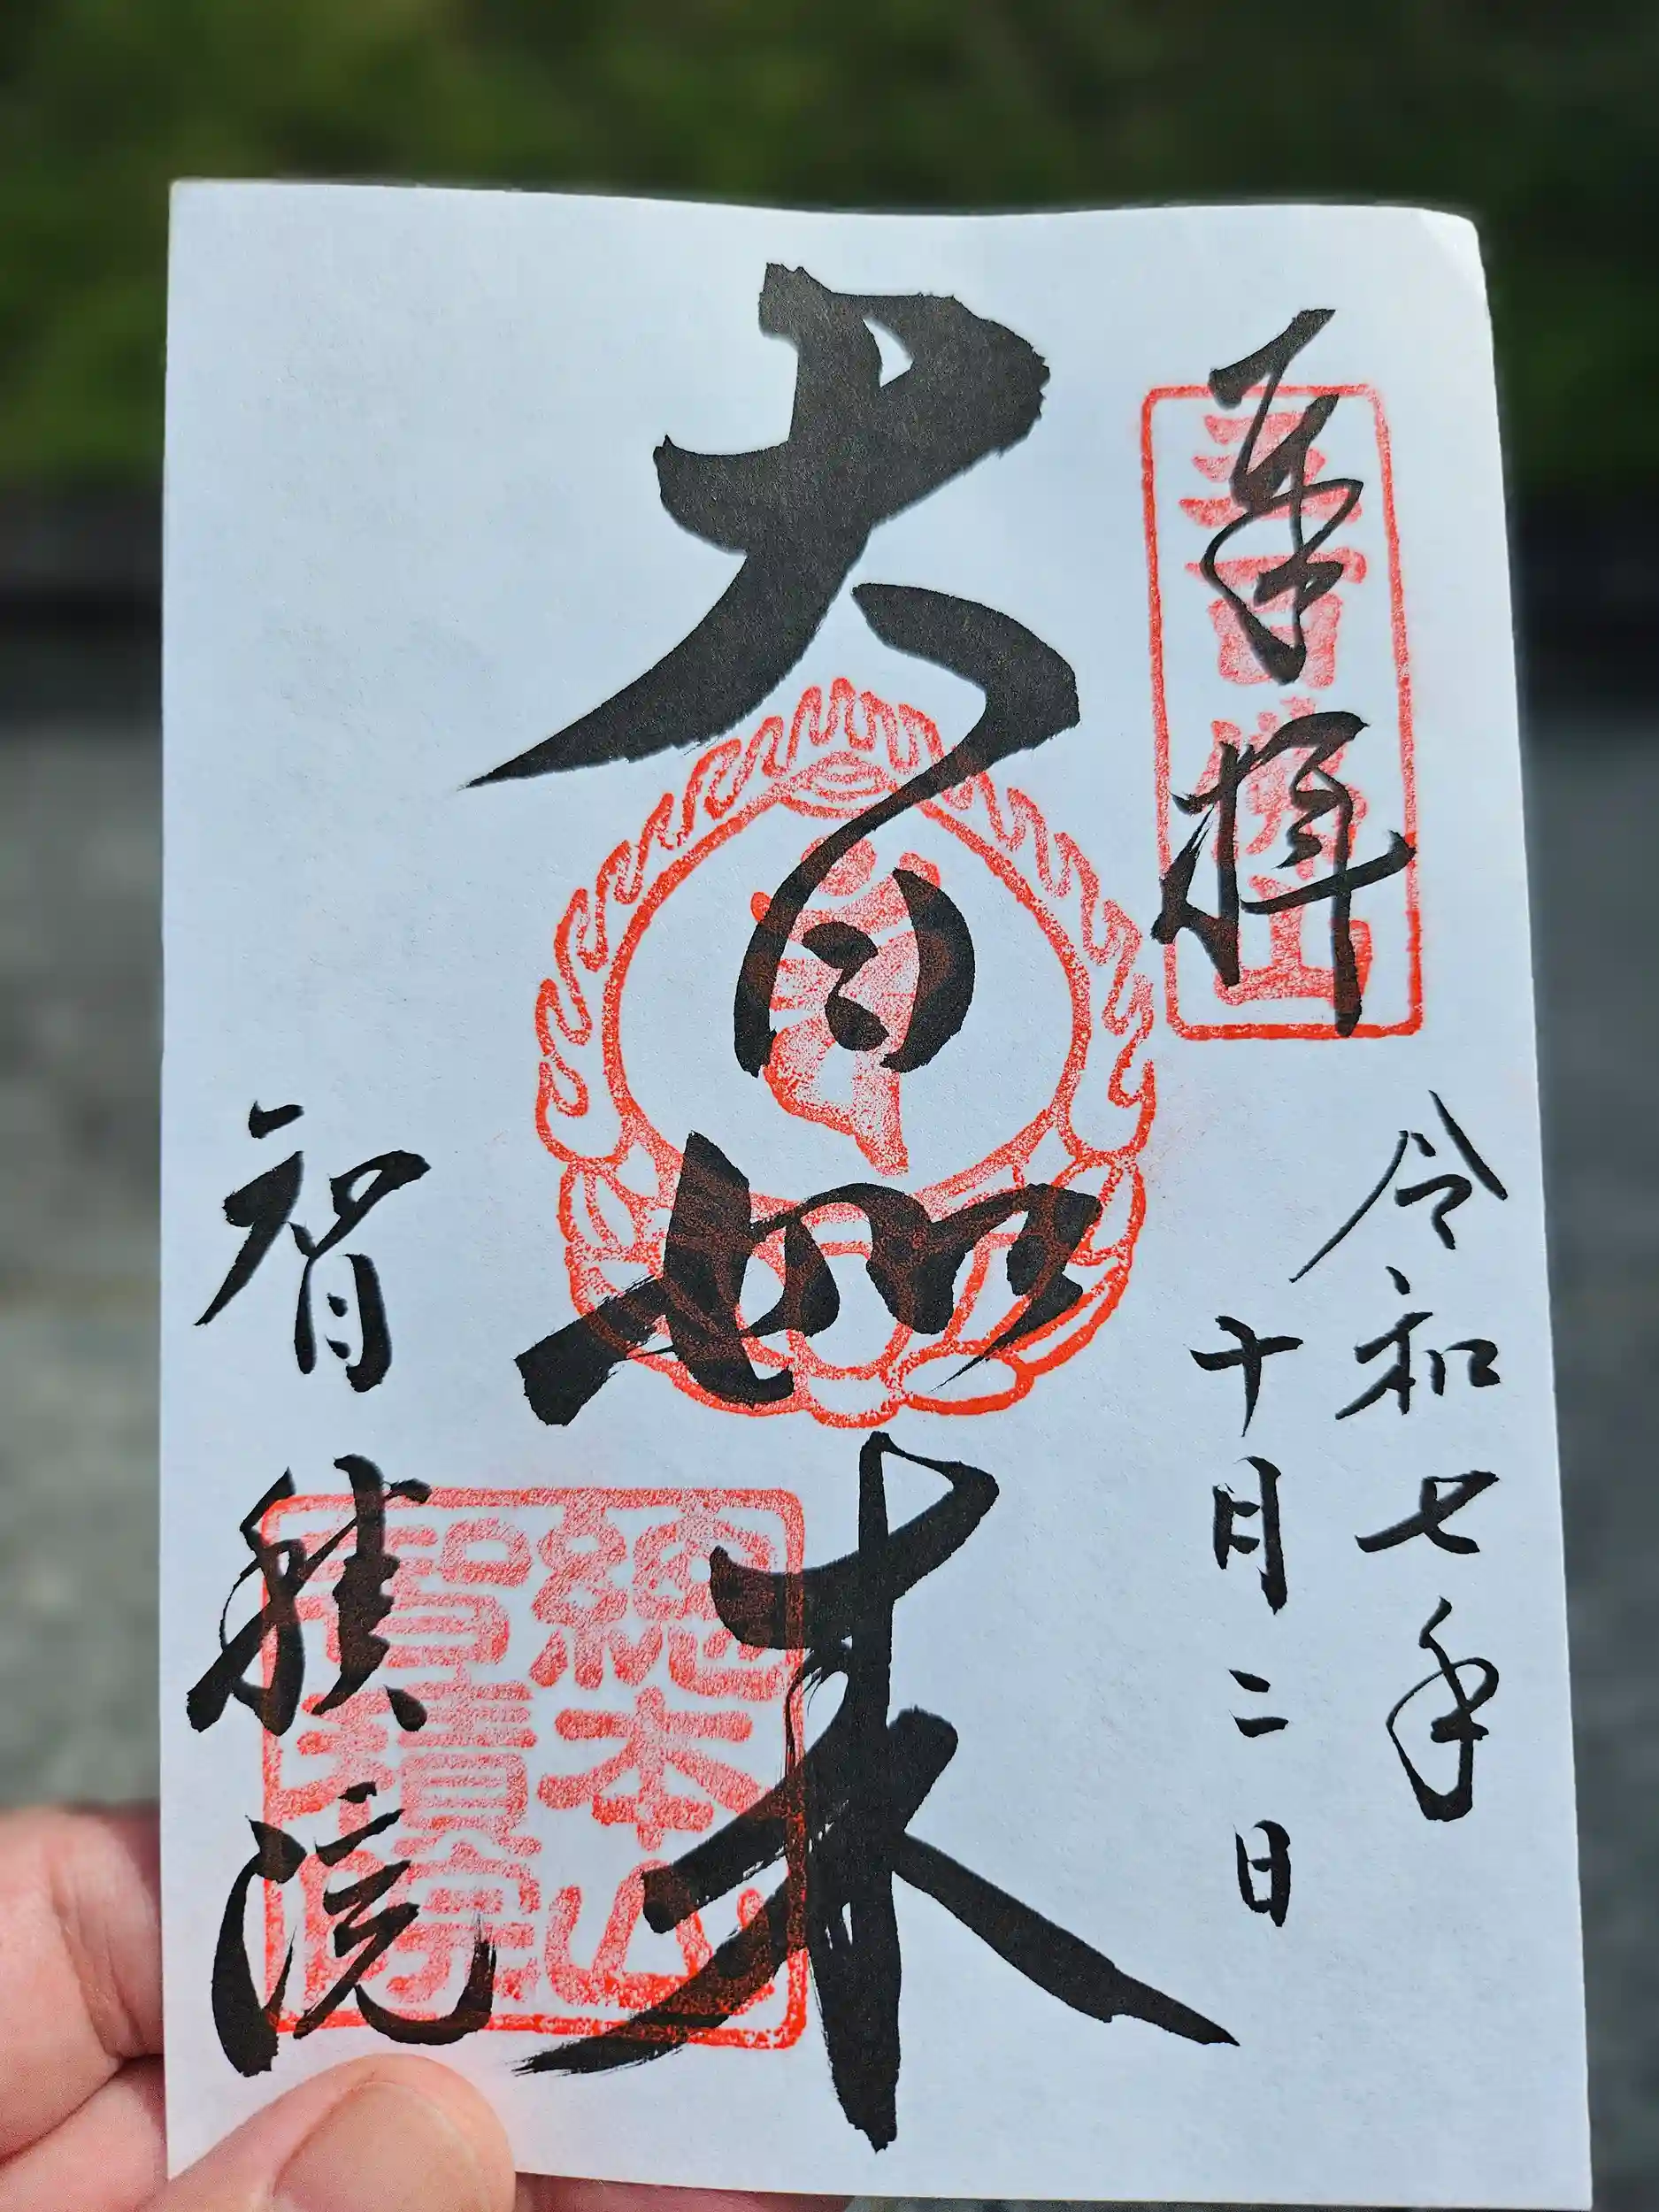 奉拝
令和七年
十月二日
大日如来
總本山
智積院
智積院